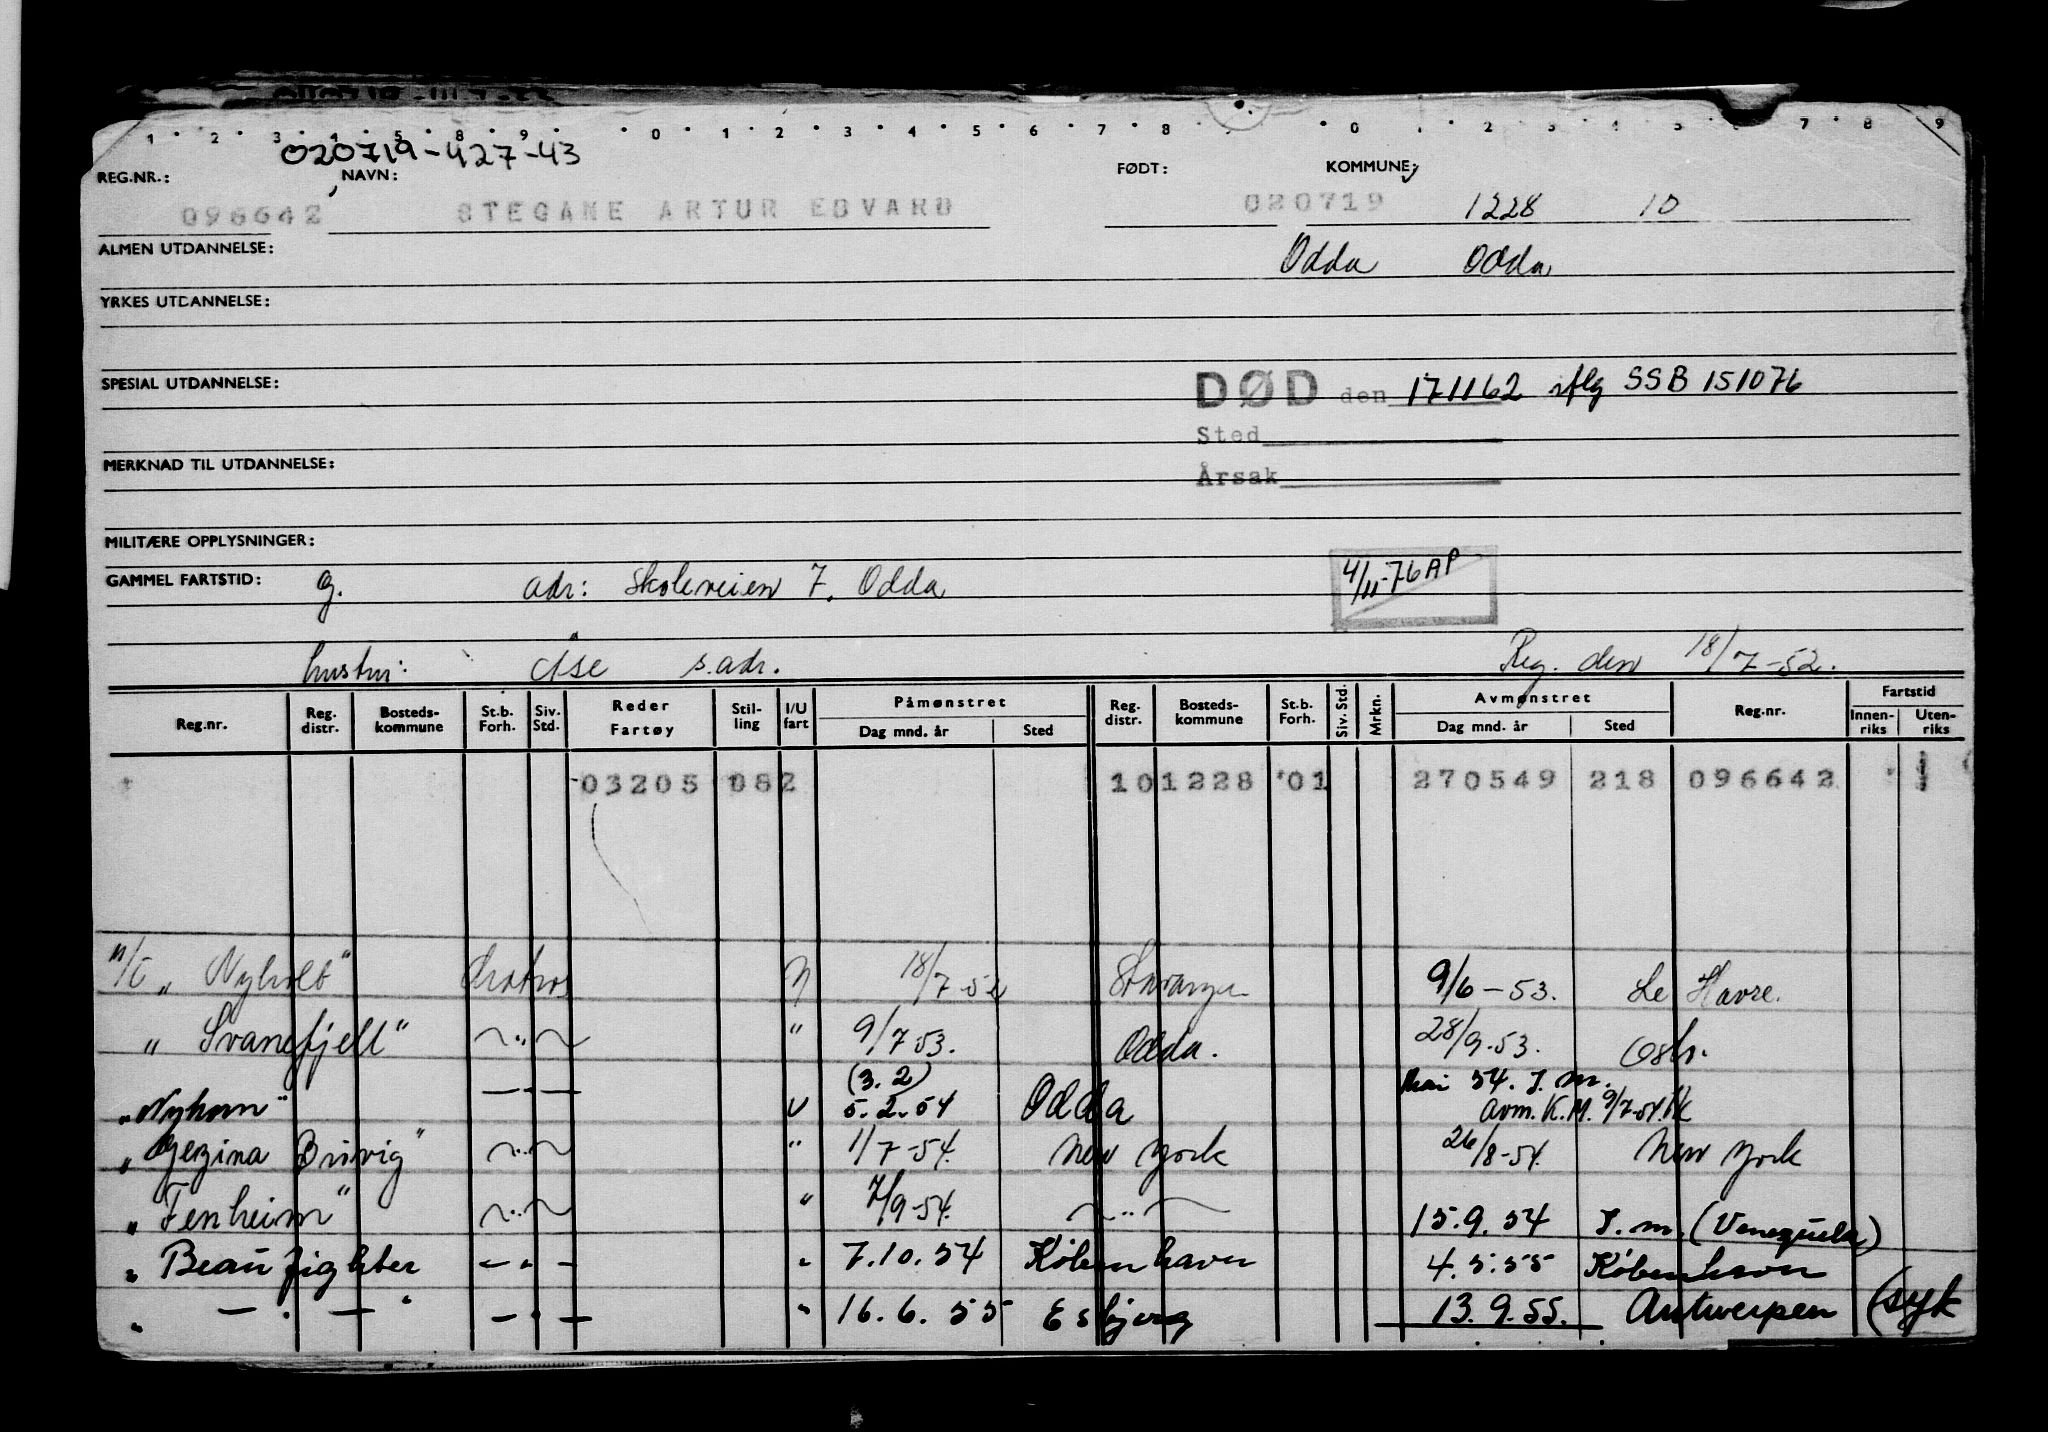 1 2 3 4 5 8 9 0 1 2 3 4 5 6 7 8 0 1 2 3 4 5 6 7 8 9
020719-427-43
REG.NR.: NAVN: FØDT: KOMMUNE:
096642 STEGANE ARTUR EDVARD 020719 1228 10
ALMEN UTDANNELSE: Odda Odda
YRKES UTDANNELSE:
SPESIAL UTDANNELSE: DØD den 171162 iflg SSB 151076
Sted
MERKNAD TIL UTDANNELSE:
Årsak
MILITÆRE OPPLYSNINGER:
GAMMEL FARTSTID: g. adr: Skoleveien 7, Odda 4/11-76 AP
hustru: Åse s.adr. Reg. den 18/7-52.
Reg.nr. Reg. distr. Bosteds-kommune St.b. Forh. Siv. Std. Reder Fartøy Stil-ling I/U fart Påmønstret Dag mnd. år Sted Reg. distr. Bosteds-kommune St.b. Forh. Siv. Std. Mrkn. Avmønstret Dag mnd. år Sted Reg.nr. Fartstid Innen-riks Uten-riks
03205 082 101228 01 270549 218 096642 1
" Nyholt" 18/7-52 Stavanger 9/6-53. Le Havre.
" Svanefjell" —"— " 9/7 53. Odda. 28/9-53. Oslo.
(3.2) mai 54. I.m.
"Nyhorn" —"— U 5.2.54 Odda avm. K.M. 9/7-54.
" Gezina Brøvig" —"— " 1/7-54. New York 26/8-54. New York
" Fenheim" —"— " 7/9-54. —"— 15.9.54 I.m. (Venezuela)
" Beaufighter —"— " 7.10.54 København 4.5.55 København
" —"— " —"— " 16.6.55 Esbjerg 13.9.55. Antwerpen (syk